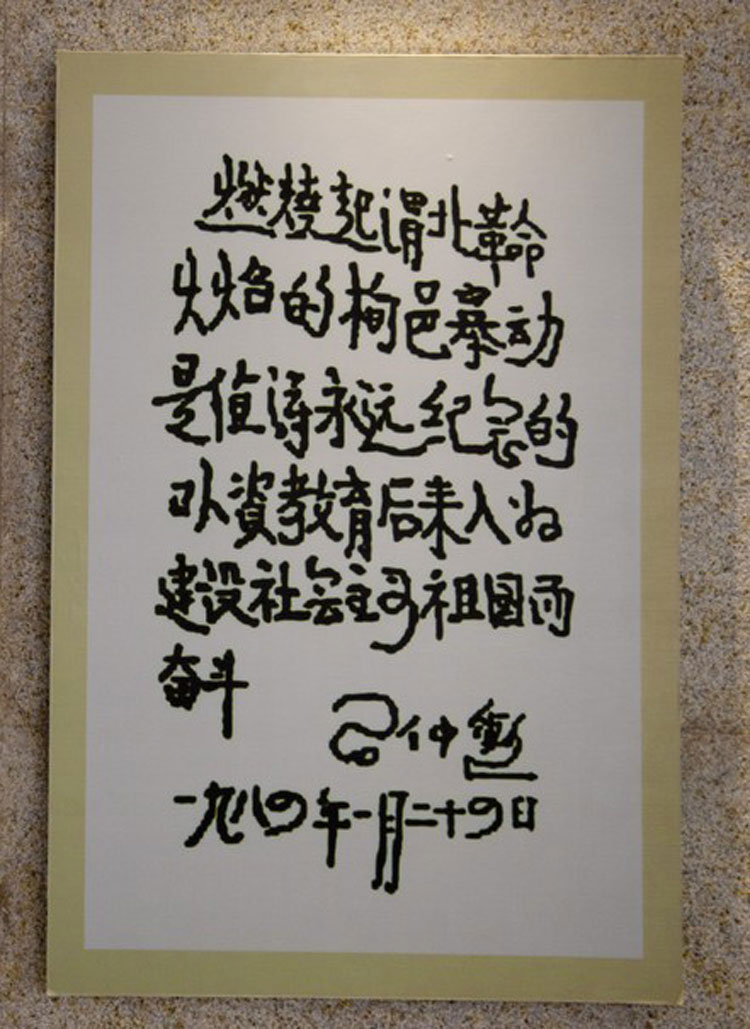 燃燒起渭北革命
火焰的栒邑暴动
是值得永远纪念的
以資教育后来人为
建设社会主义祖国而
奋斗
吕仲
一九八四年一月二十四日